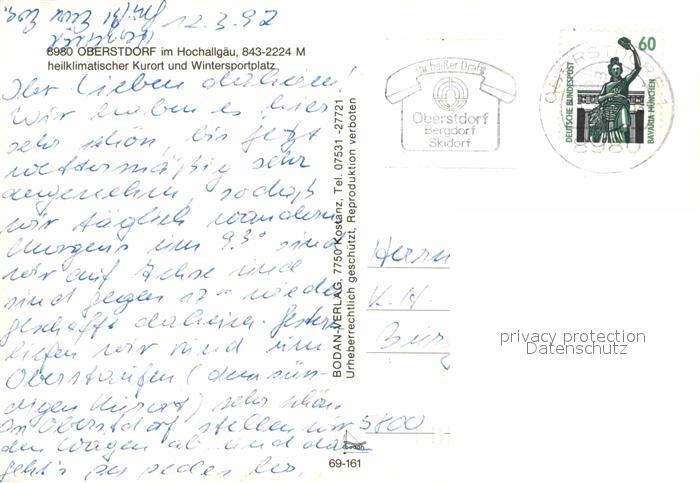 12.3.92
8980 OBERSTDORF im Hochallgäu, 843-2224 M
heilklimatischer Kurort und Wintersportplatz
Ihr Lieben daheim!
Wir haben es hier
sehr schön, bis jetzt
wettermäßig sehr
angenehm, sodaß
wir täglich wandern
Morgens um 9.30 sind
wir auf Achse und
sind gegen 17 wieder
geschafft daheim. Gestern
liefen wir rund um
Oberstaufen (dem sün-
digen Kurort) sehr schön.
In Oberstdorf stellen wir
den Wagen ab und dann
geht's zu
BODAN-VERLAG, 7750 Kostanz, Tel. 07531 -27721
Urheberrechtlich geschützt, Reproduktion verboten
bodan
69-161
Ihr heißer Draht
Oberstdorf
Bergdorf
Skidorf
OBERSTDORF 1
8980
60
DEUTSCHE BUNDESPOST
BAVARIA MÜNCHEN
Herrn
K. H.
5800
privacy protection
Datenschutz